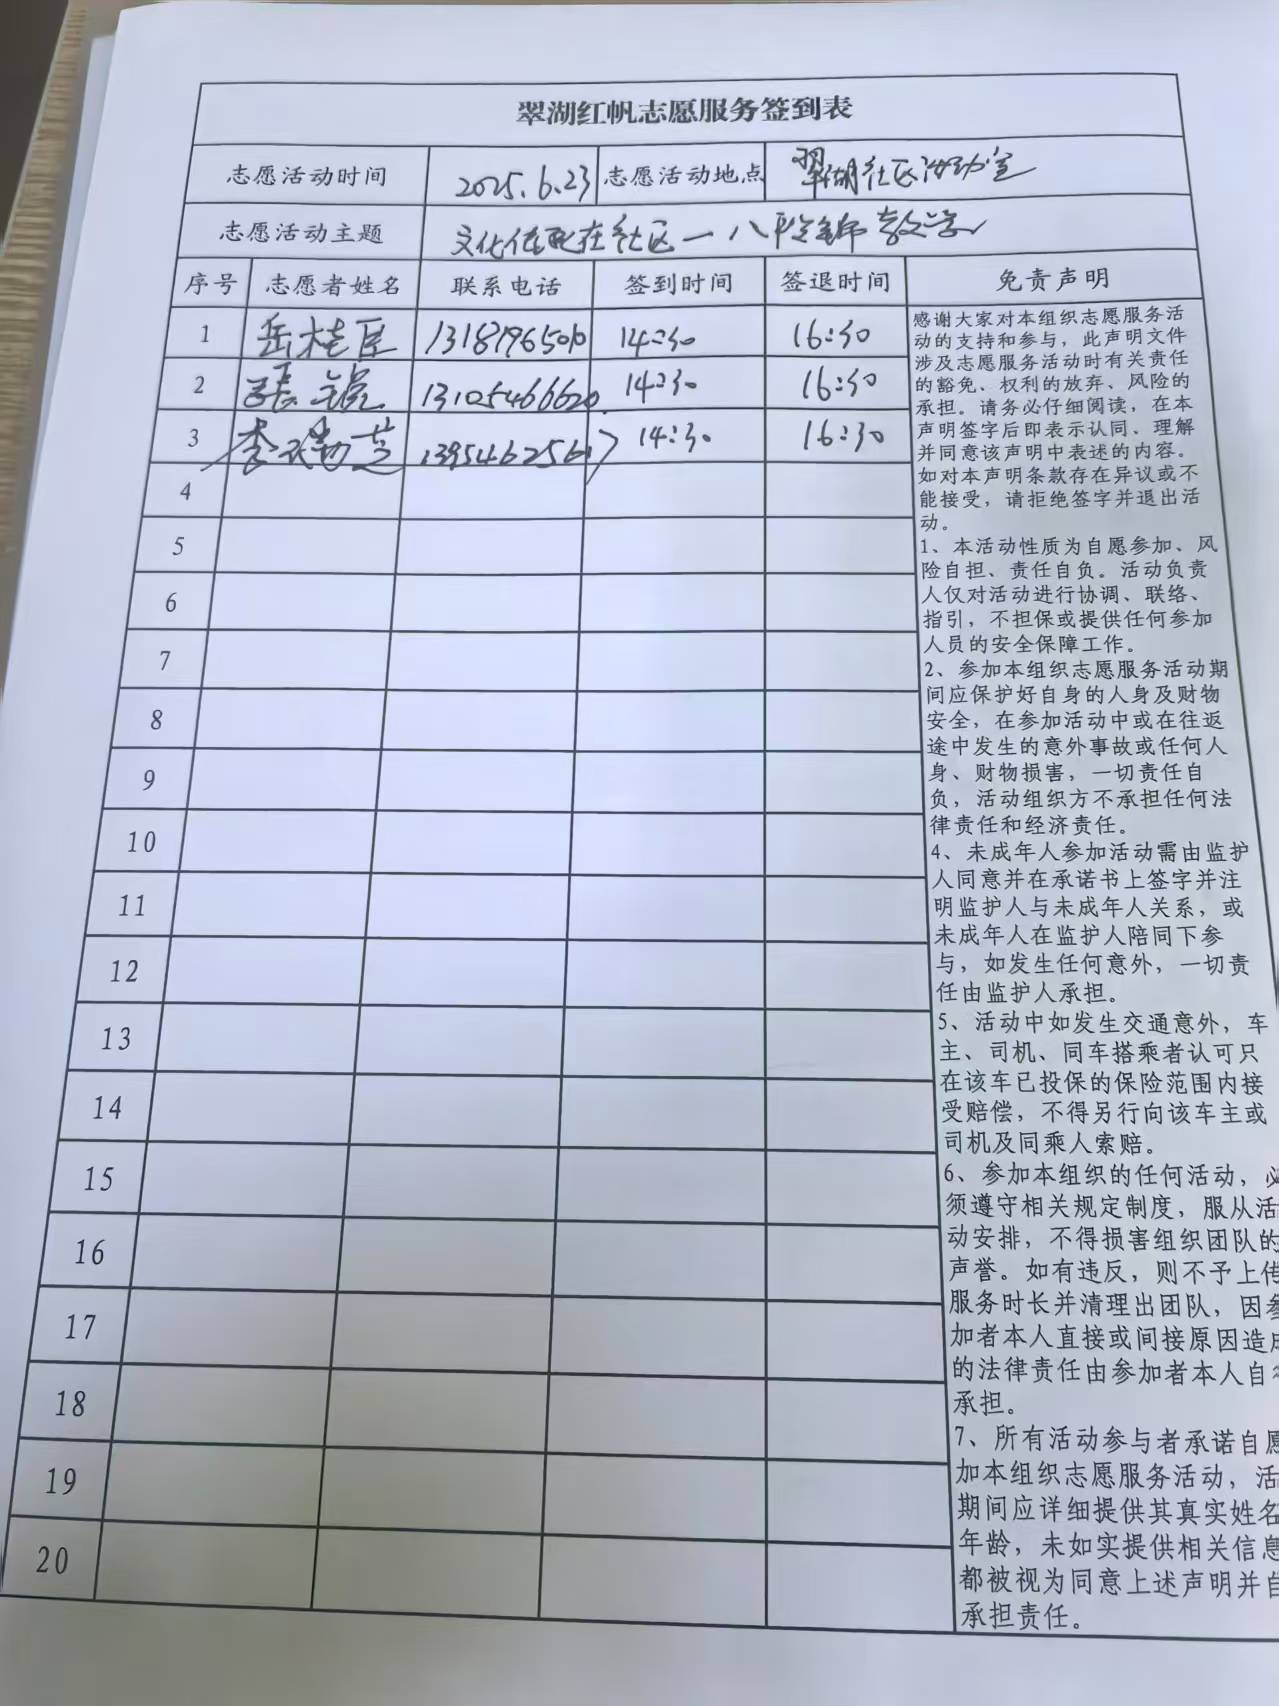 翠湖红帆志愿服务签到表
志愿活动时间 2025.6.23 志愿活动地点 翠湖社区活动室
志愿活动主题 文化传承在社区一八段锦教学
序号 志愿者姓名 联系电话 签到时间 签退时间 免责声明
1 岳桂臣 13187965010 14:30 16:30
2 張锐 13105466620 14:30 16:30
3 李 芝 13954625617 14:30 16:30
4
5
6
7
8
9
10
11
12
13
14
15
16
17
18
19
20
感谢大家对本组织志愿服务活
动的支持和参与，此声明文件
涉及志愿服务活动时有关责任
的豁免、权利的放弃、风险的
承担。请务必仔细阅读，在本
声明签字后即表示认同、理解
并同意该声明中表述的内容。
如对本声明条款存在异议或不
能接受，请拒绝签字并退出活
动。
1、本活动性质为自愿参加、风
险自担、责任自负。活动负责
人仅对活动进行协调、联络、
指引，不担保或提供任何参加
人员的安全保障工作。
2、参加本组织志愿服务活动期
间应保护好自身的人身及财物
安全，在参加活动中或在往返
途中发生的意外事故或任何人
身、财物损害，一切责任自
负，活动组织方不承担任何法
律责任和经济责任。
4、未成年人参加活动需由监护
人同意并在承诺书上签字并注
明监护人与未成年人关系，或
未成年人在监护人陪同下参
与，如发生任何意外，一切责
任由监护人承担。
5、活动中如发生交通意外，车
主、司机、同车搭乘者认可只
在该车已投保的保险范围内接
受赔偿，不得另行向该车主或
司机及同乘人索赔。
6、参加本组织的任何活动，必
须遵守相关规定制度，服从活
动安排，不得损害组织团队的
声誉。如有违反，则不予上传
服务时长并清理出团队，因参
加者本人直接或间接原因造成
的法律责任由参加者本人自行
承担。
7、所有活动参与者承诺自愿
加本组织志愿服务活动，活
期间应详细提供其真实姓名
年龄，未如实提供相关信息
都被视为同意上述声明并自
承担责任。